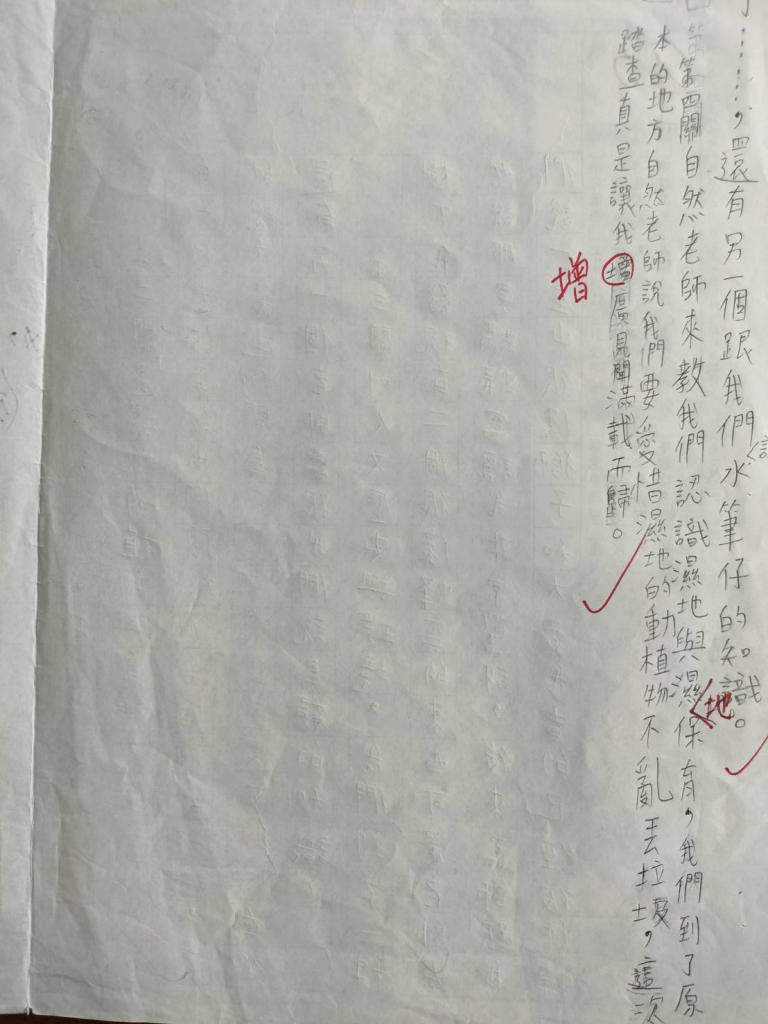 了……，還有另一個跟我們水筆仔的知識。
第四關自然老師來教我們認識濕地與濕保育，我們到了原
本的地方自然老師說我們要愛惜濕地的動植物不亂丟垃圾，這次
踏查真是讓我增廣見聞滿載而歸。
地
增